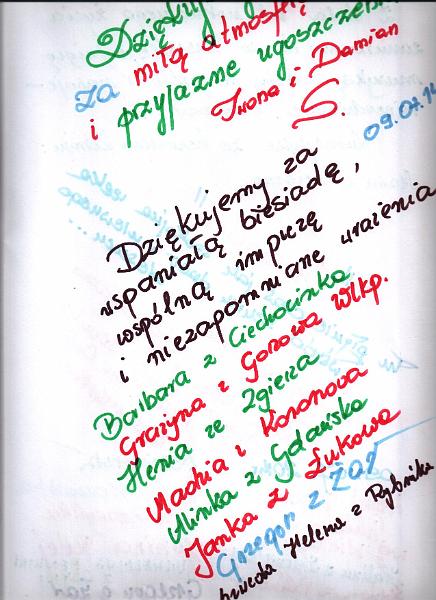 Dziękujemy
za miłą atmosferę
i przyjazne ugoszczenie
Iwona i Damian
S.
09.07.14
Dziękujemy za
wspaniałą biesiadę,
wspólną imprzę
i niezapomniane wrażenia
Barbara z Ciechocinka
Grażyna z Gorzowa Wlkp.
Henia ze Zgierza
Madzia z Koronowa
Alinka z Gdańska
Janka z Łukowa
Grzegorz z Żar
Helena z Rybnika